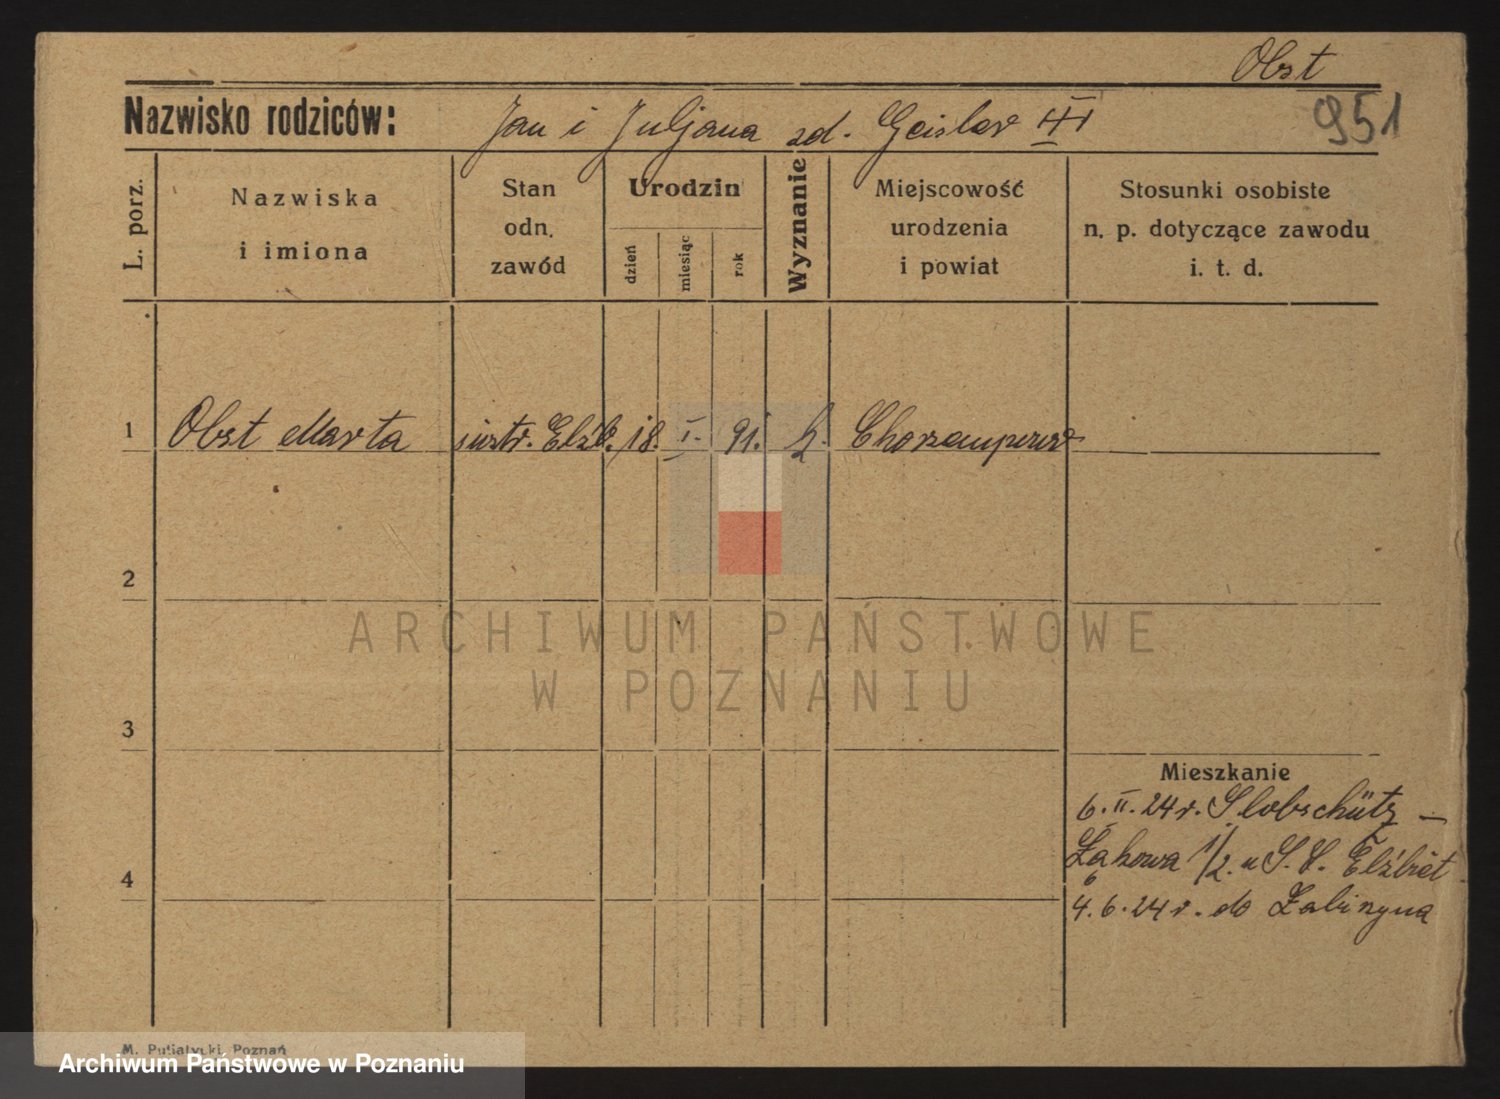 Obst
Nazwisko rodziców: Jan i Juljana zd. Geisler III
951
L. porz.
Nazwiska
i imiona
Stan
odn.
zawód
Urodzin
dzień
miesiąc
rok
Wyznanie
Miejscowość
urodzenia
i powiat
Stosunki osobiste
n. p. dotyczące zawodu
i. t. d.
1 Obst Marta siostr. Elżb. 18. I. 91.
2
ARCHIWUM PAŃSTWOWE
W POZNANIU
3
Mieszkanie
6. II. 24 r.
Łąkowa 1/2. u S. S. Elżbiet
4
4. 6. 24 r. do
M. Putiatycki, Poznań
Archiwum Państwowe w Poznaniu